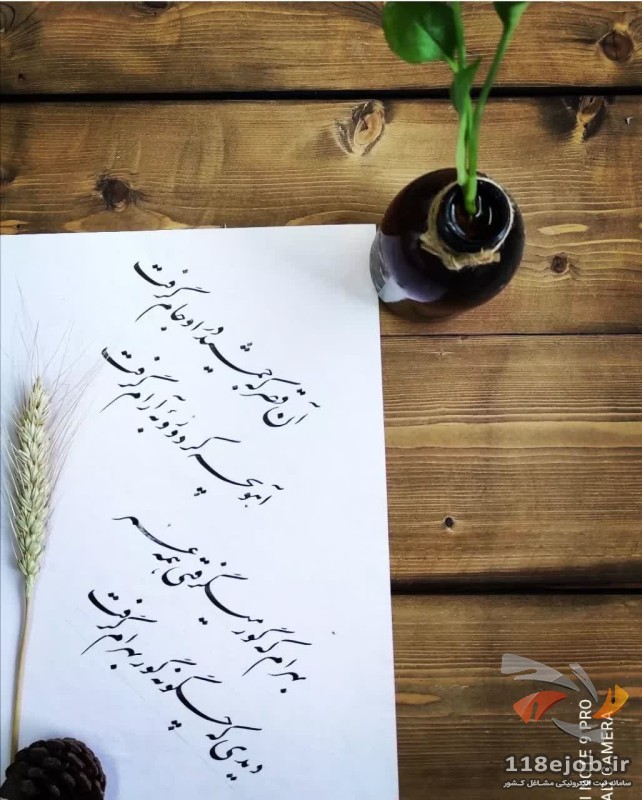 آن قصر که جمشید در او جام گرفت
آهو بچه کرد و روبه آرام گرفت
بهرام که گور میگرفتی همه عمر
دیدی که چگونه گور بهرام گرفت
118ejob.ir
سامانه ثبت الکترونیکی مشاغل کشور
NOTE 9 PRO
AI CAMERA